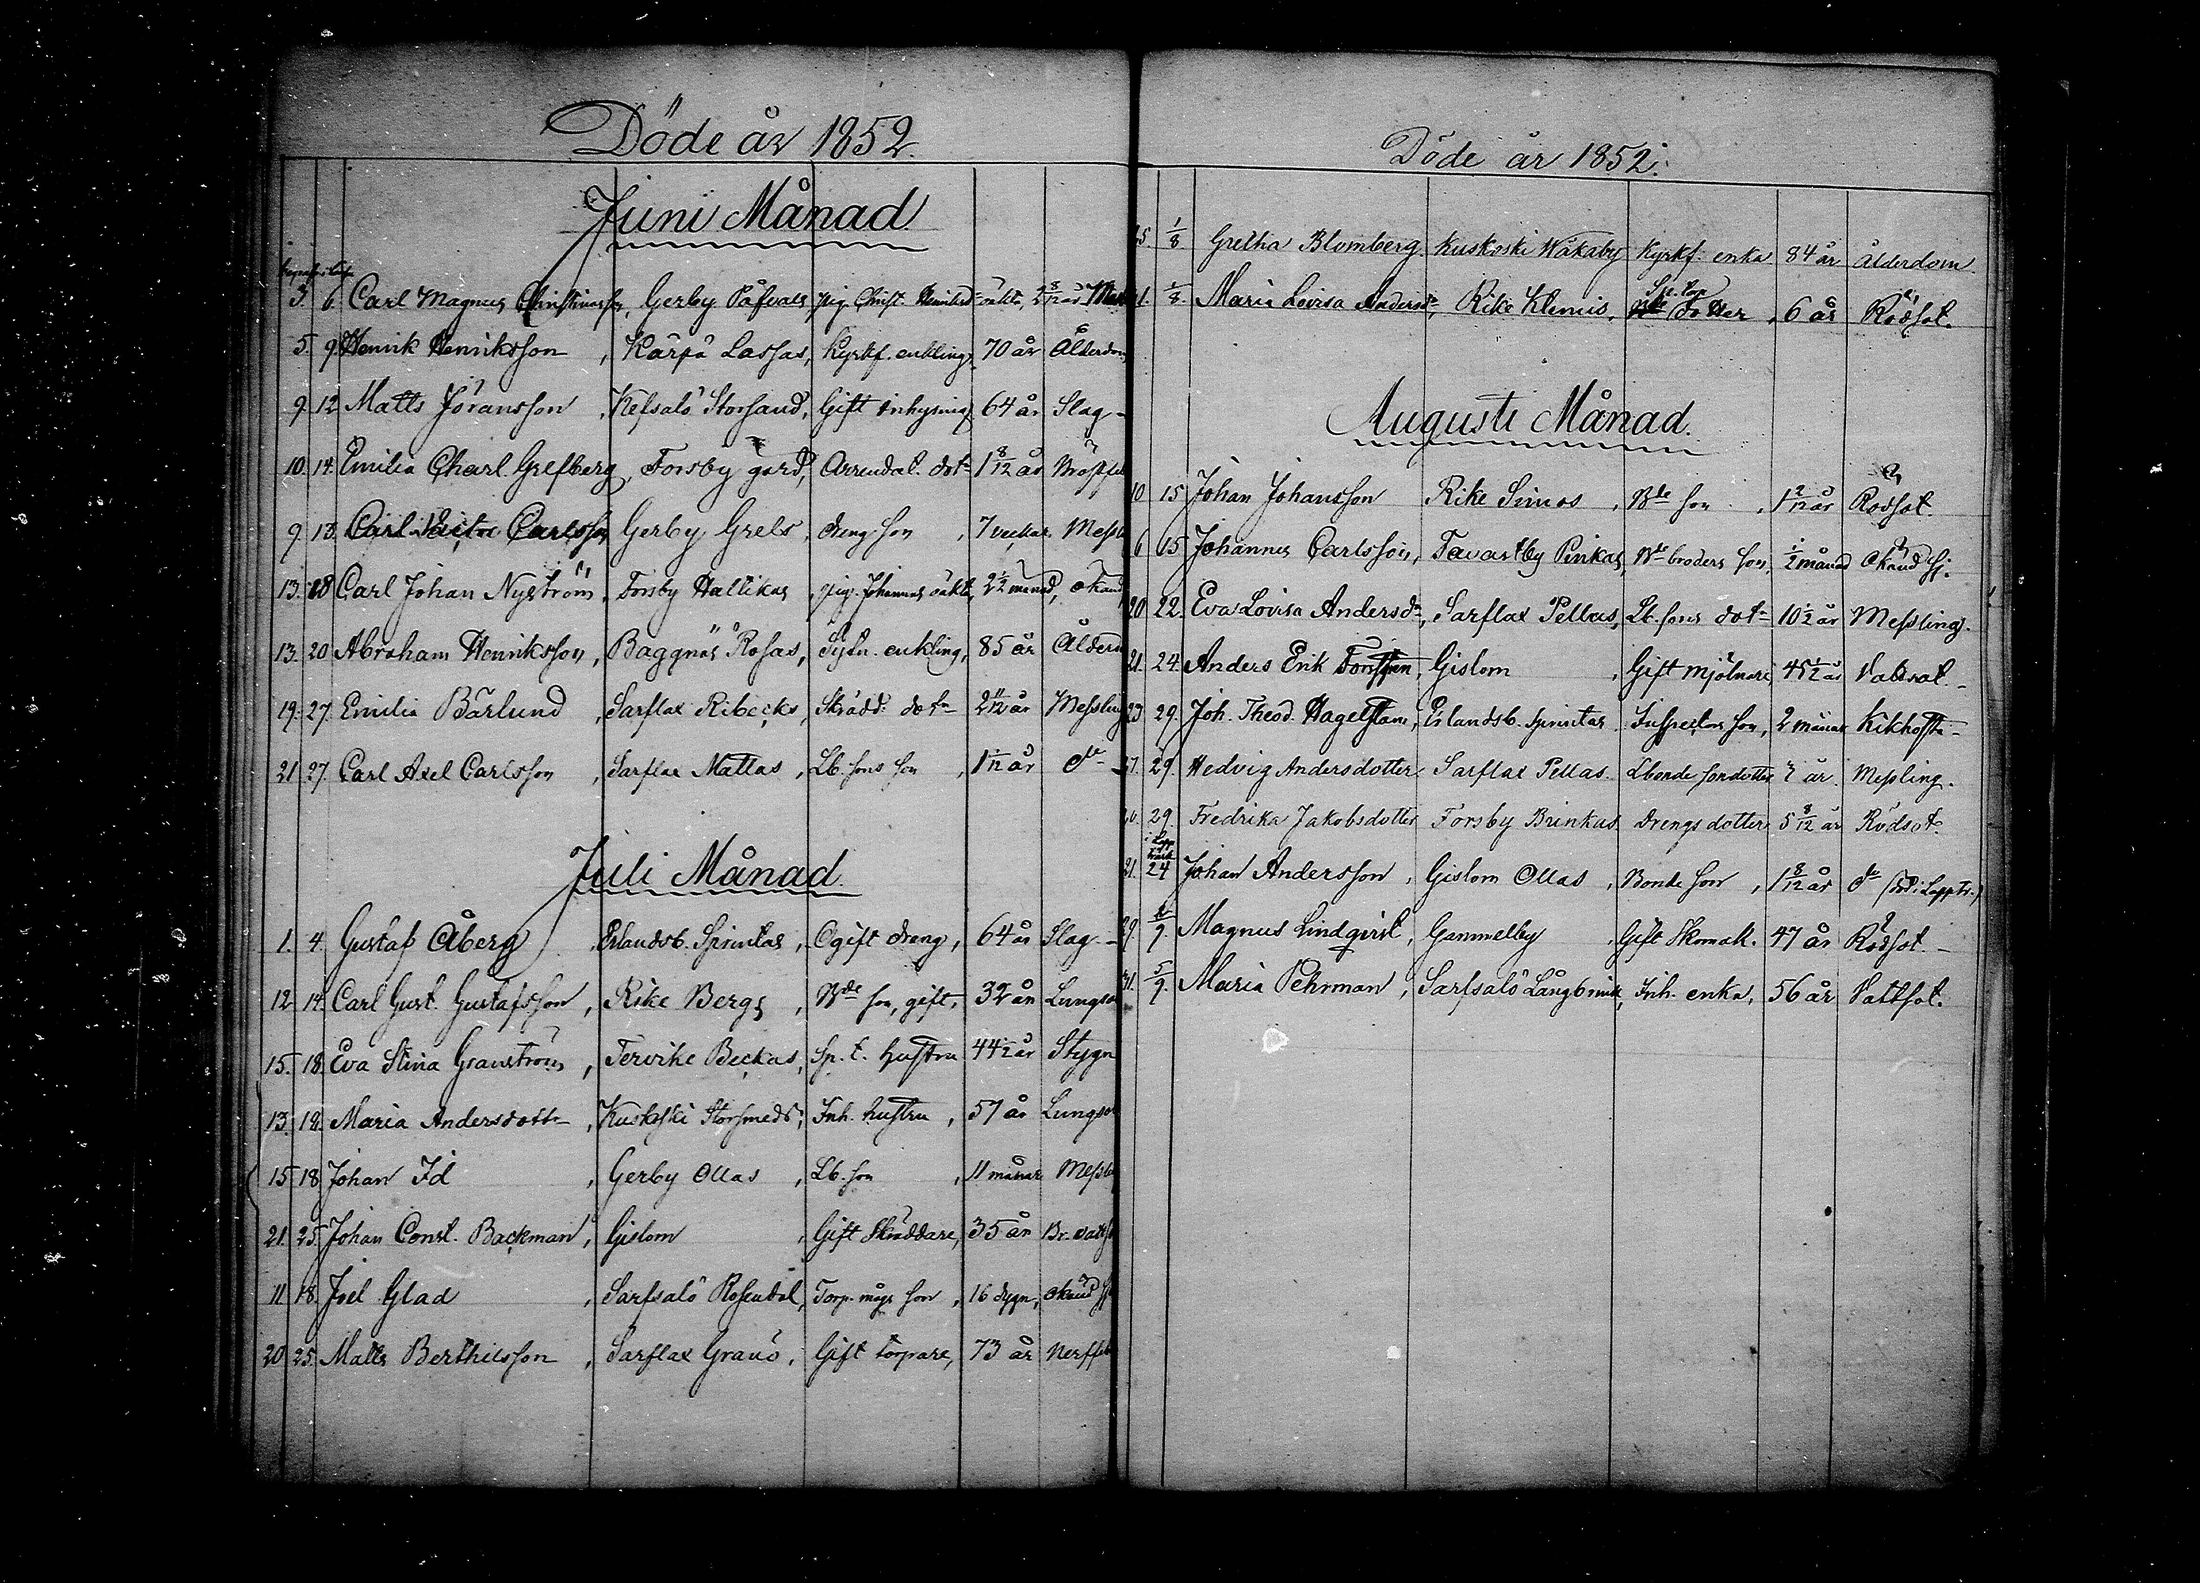 Döde år 1852.
Juni Månad
3. 6. Carl Magnus Christinesson, Gerby Påfvals, pig. Christ. Henriksd. oäkta, 2 8/12 år
5. 9. Henrik Henriksson, Härpä Lassas, Kyrkf. enkling, 70 år Ålderdom
9. 12 Matts Jöransson, Kefsalö Storsand, Gift inhysing, 64 år Slag
10. 14. Emilia Charl Grefberg, Forsby gård, Arrendat. dotr 1 8/12 år Bröstfeb
9. 13. Carlsson Gerby Grels, drengson, 7 veckor Messl
13. 18 Carl Johan Nyström, Forsby Hallikas, pig. Johannas oäkta, 2 1/2 månad, okänd
13. 20 Abraham Henriksson, Baggnäs Rosas, Sytn. enkling, 85 år Ålderd
19. 27. Emilia Bärlund, Sarflax Ribecks, Skrädd. dotr 2 11/12 år Messling
21 27. Carl Axel Carlsson, Sarflax Mattas, Lb. sons son, 1 1/12 år do
Juli Månad
1. 4. Gustaf Åberg, Erlandsb. Sprintas, Ogift dreng, 64 år Slag
12 14. Carl Gust. Gustafsson, Rike Bergs, Bde son, gift, 32 år Lungso
15. 18. Eva Stina Granström, Tervike Beckas, Sp. t. hustru 44 1/2 år Stygn
13. 18. Maria Andersdottr, Kuskoski Storsmeds, Inh. hustru, 57 år Lungso
15 18 Johan Id, Gerby Ollas, Lb. son, 11 månar Messl
21. 25. Johan Const. Backman, Gislom, Gift Skräddare, 35 år Br. vatts
11 18. Joel Glad, Sarfsalö Rosendal, Torp. mågs son, 16 dygn, okänd sj
20 25. Matts Berthilsson, Sarflax Granö, Gift torpare, 73 år Nerffeb
Döde år 1852.
25. 1/8 Gretha Blomberg Kuskoski Wåkaby Kyrkf. enka 84 år Ålderdom
31. 1/8. Maria Lovisa Andersdr, Rike Klemis, dotter, 6 år Rödsot.
Augusti Månad.
10. 15 Johan Johansson Rike Simos, Bde son, 1 2/12 år Rödsot.
6 15 Johannes Carlsson, Tavastby Pinkas, Bde broders son, 1/2 månad Okänd sj.
20 22. Eva Lovisa Andersdr, Sarflax Pellas, Lb. sons dotr 10 1/2 år Messling.
21. 24. Anders Erik Gislom, Gift mjölnare, 45 1/2 år Vattsot
23 29. Joh. Theod. Hagelstam, Erlandsb. Sprintas Inspectors son, 2 månar Kikhosta
27. 29. Hedvig Andersdotter Sarflax Pellas Lbonde sondotter 7 år. Messling.
26. 29. Fredrika Jakobsdotter Forsby Brinkas Drengs dotter 5 8/12 år Rödsot.
i Lapp
träsk
21. 24 Johan Andersson, Gislom Ollas, Bonde son, 1 8/12 år do (död i Lapptr.)
29 5/9. Magnus Lindqvist, Gammelby, Gift Skomak. 47 år Rödsot.
31. 5/9. Maria Pehrman, Sarfsalö Långbrink, Inh. enka, 56 år Vattsot.